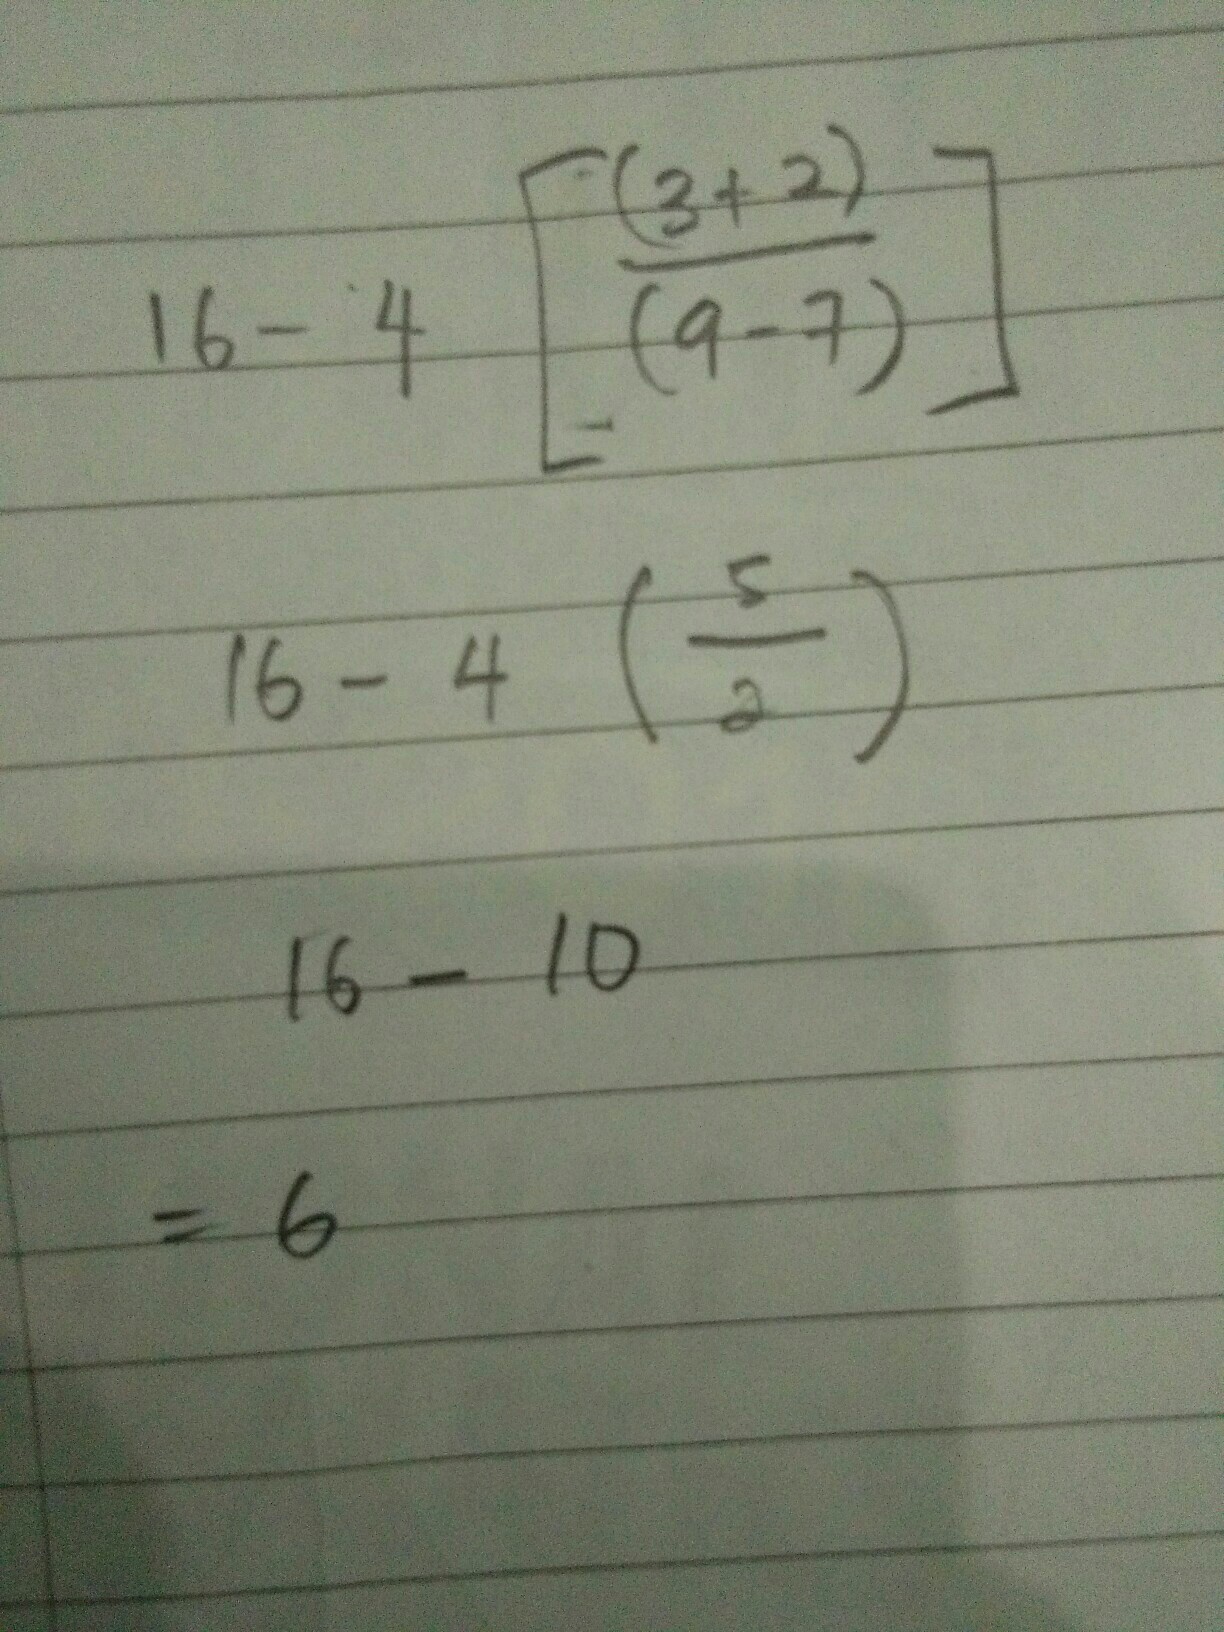 16 - 4 [(3+2)/(9-7)]
16 - 4 (5/2)
16 - 10
= 6